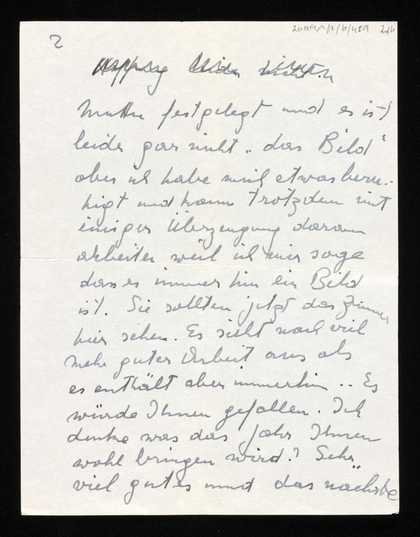 2
Mutter festgelegt und es ist
leider gar nicht „das Bild"
aber ich habe mich etwas beru-
higt und kann trotzdem mit
einiger Überzeugung daran
arbeiten weil ich mir sage
dass es immerhin ein Bild
ist. Sie sollten jetzt das Zimmer
hier sehen. Es sieht nach viel
mehr guter Arbeit aus als
es enthält aber immerhin .. Es
würde Ihnen gefallen. Ich
denke was das Jahr Ihnen
wohl bringen wird? Sehr
viel gutes und das nächste